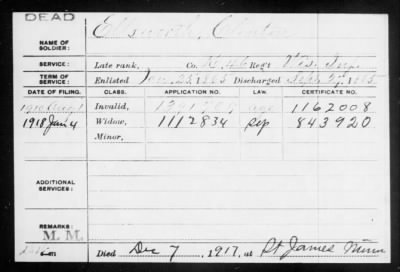 DEAD
NAME OF SOLDIER: Ellsworth, Clinton
SERVICE: Late rank, Co. K, 46 Reg't Wis. Inf.
TERM OF SERVICE: Enlisted Jan. 25, 1865 Discharged Sept. 27, 1865
DATE OF FILING. CLASS. APPLICATION NO. LAW. CERTIFICATE NO.
Invalid, age 1162008
1918 Jan 4 Widow, 1112834 Sep 843920
Minor,
ADDITIONAL SERVICES:
REMARKS:
M. M.
Died Dec 7, 1917, at St James Minn